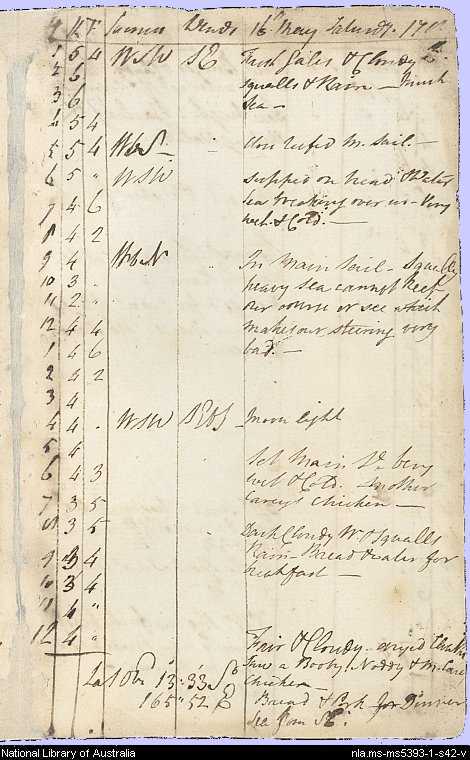 H K F Courses Winds 16th May Saturdy. 17
1 5 4 WSW SE Fresh Gales & Cloudy
2 6 squalls & Rain — Much
3 6 sea —
4 5 4
5 5 4 WbS " Close reefed M. sail. —
6 5 " WSW supped on bread & Water
7 4 6 sea breaking over us — Very
8 4 2 wet. & Cold. —
9 4 WbN " In Main Sail — Squally
10 3 . heavy sea cannot keep
11 2 " our course or see which
12 4 4 makes our steering very
1 4 6 bad. —
2 4 2
3 4
4 4 . WSW SEbS — Moon light
5 4
6 4 3 Set Main Sl. very
7 3 5 wet & Cold. Another
8 3 5 Careys Chicken —
Dark Cloudy Wr. & Squalls
9 3 4 Rain — Bread & water for
10 3 4 breakfast —
11 4 "
12 4 " Fair & Cloudy —
Saw a Booby, Noddy & M. Care
Lat Obs 13°.33 S° Chicken —
165°.52 E Bread & Pork for Dinner
Sea from SE.
National Library of Australia nla.ms-ms5393-1-s42-v